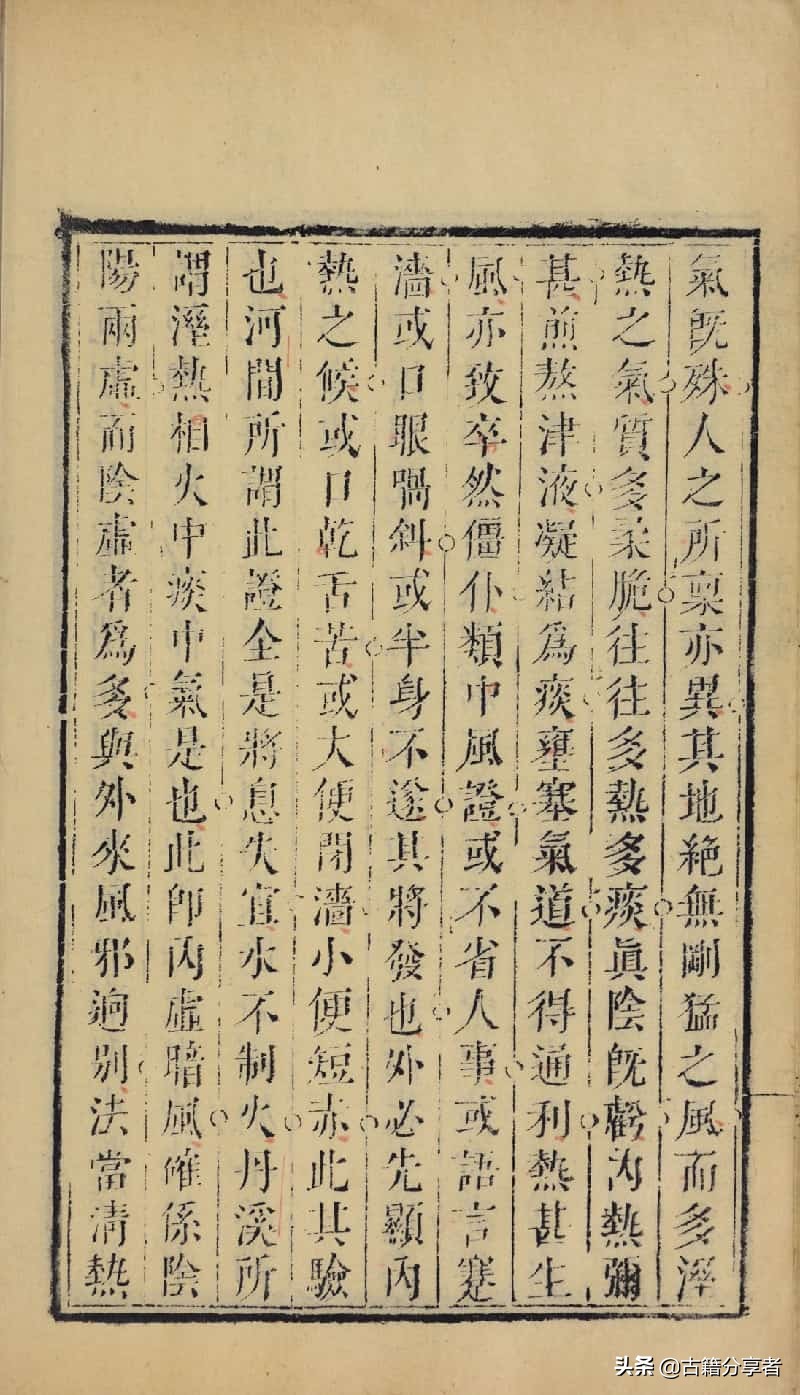 氣旣殊人之所稟亦異其地絶無剛猛之風而多溼
熱之氣質多柔脆往往多熱多痰眞陰旣虧内熱彌
甚煎熬津液凝結爲痰壅塞氣道不得通利熱甚生
風亦致卒然僵仆類中風證或不省人事或語言蹇
濇或口眼喎斜或半身不遂其將發也外必先顯内
熱之候或口乾舌苦或大便閉濇小便短赤此其驗
也河間所謂此證全是將息失宜水不制火丹溪所
謂溼熱相火中痰中氣是也此卽内虛暗風確係陰
陽兩虛而陰虛者爲多與外來風邪迥别法當清熱
头条 @古籍分享者